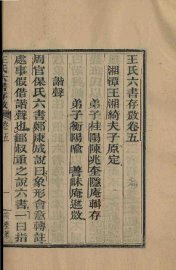 王氏六書存㪚卷五
湘潭王湘綺夫子原定
弟子桂陽陳兆奎隱庵輯存
弟子衡陽喻 善味庵
諧聲
周官保氏六書鄭康成說曰象形會意轉註
處事假借諧聲也
之說六書一曰指